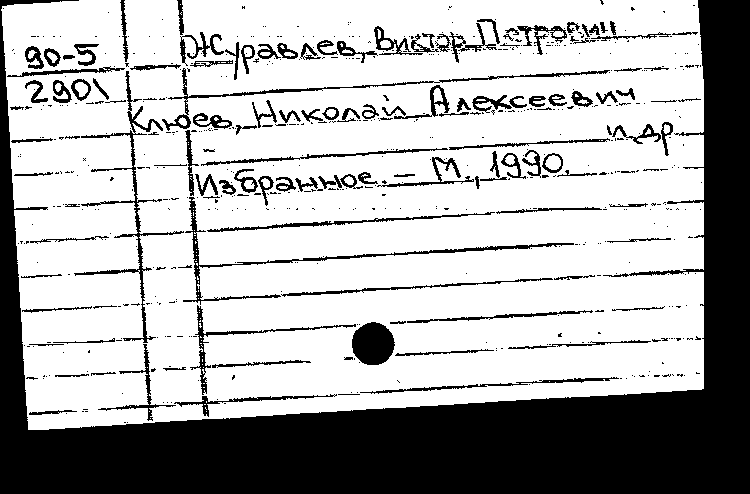 90-5
2901
Журавлев, Виктор Петрович
Клюев, Николай Алексеевич
и др
Избранное. – М., 1990.